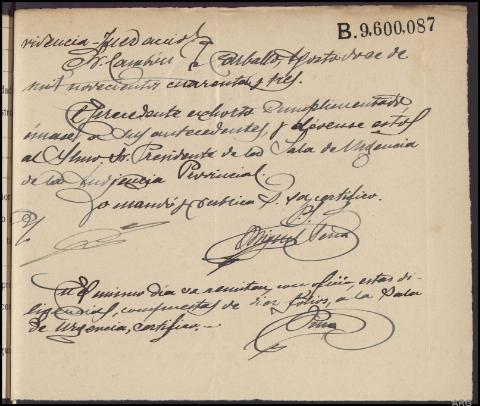 B.9.600.087
videncia - Juez accid
Sr. Carballo, Agosto doce de
mil novecientos cuarenta y tres.
El precedente exhorto cumplimentado
únase a sus antecedentes y elévense estos
al Ilmo. Sr. Presidente de la Sala de Urgencia
de la Audiencia Provincial.
Lo mandó y rubrica S. Sª, certifico.
Miguel Pena
El mismo día se remiten con oficio estas di-
ligencias, compuestas de diez folios, a la Sala
de Urgencia, certifico.-
Pena